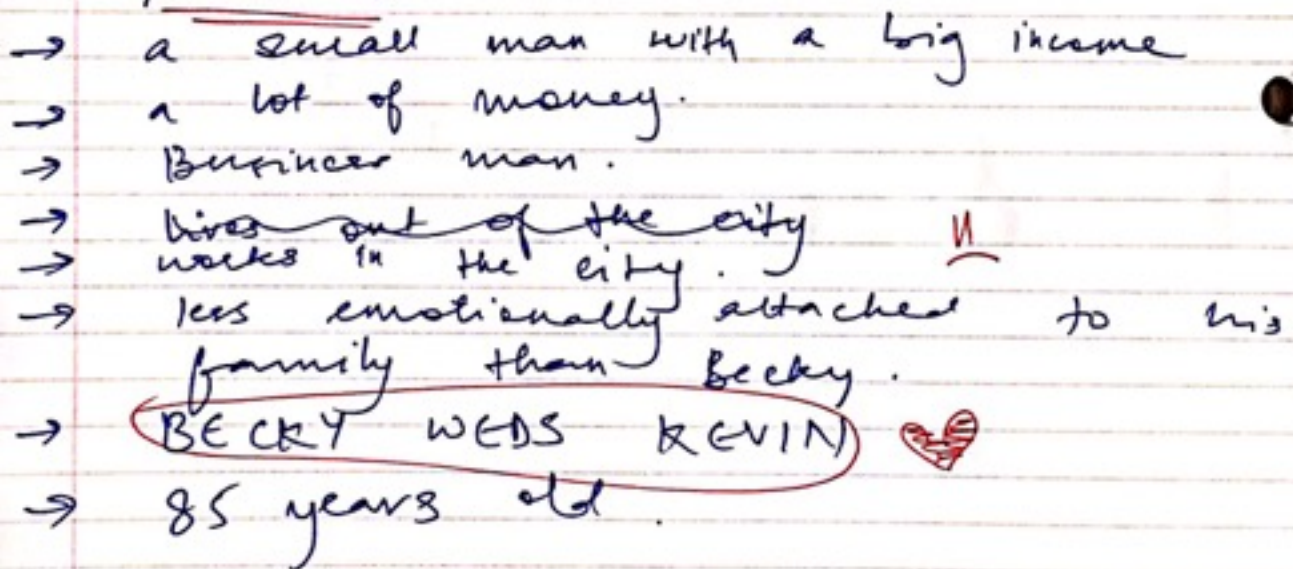 → a small man with a big income
→ a lot of money.
→ Businees man.
→ lives out of the city
→ works in the city.
→ less emotionally attached to his
family than Becky.
→ BECKY WEDS KEVIN
→ 85 years old.